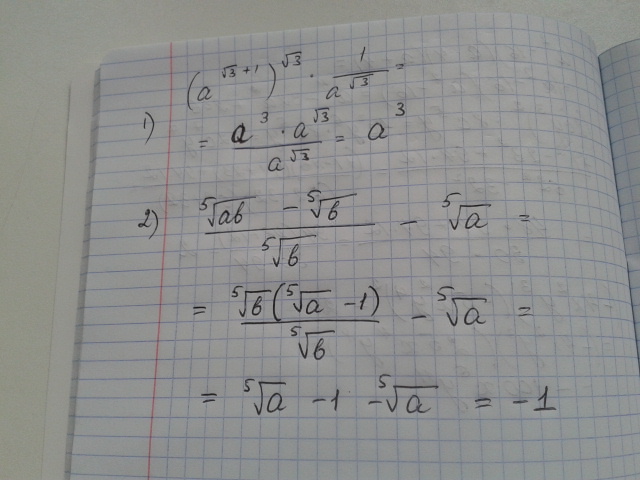 (a^{√3+1})^{√3} · 1/a^{√3} =
1) = (a^3 · a^{√3})/a^{√3} = a^3
2) (⁵√ab − ⁵√b)/⁵√b − ⁵√a =
= ⁵√b(⁵√a − 1)/⁵√b − ⁵√a =
= ⁵√a − 1 − ⁵√a = −1